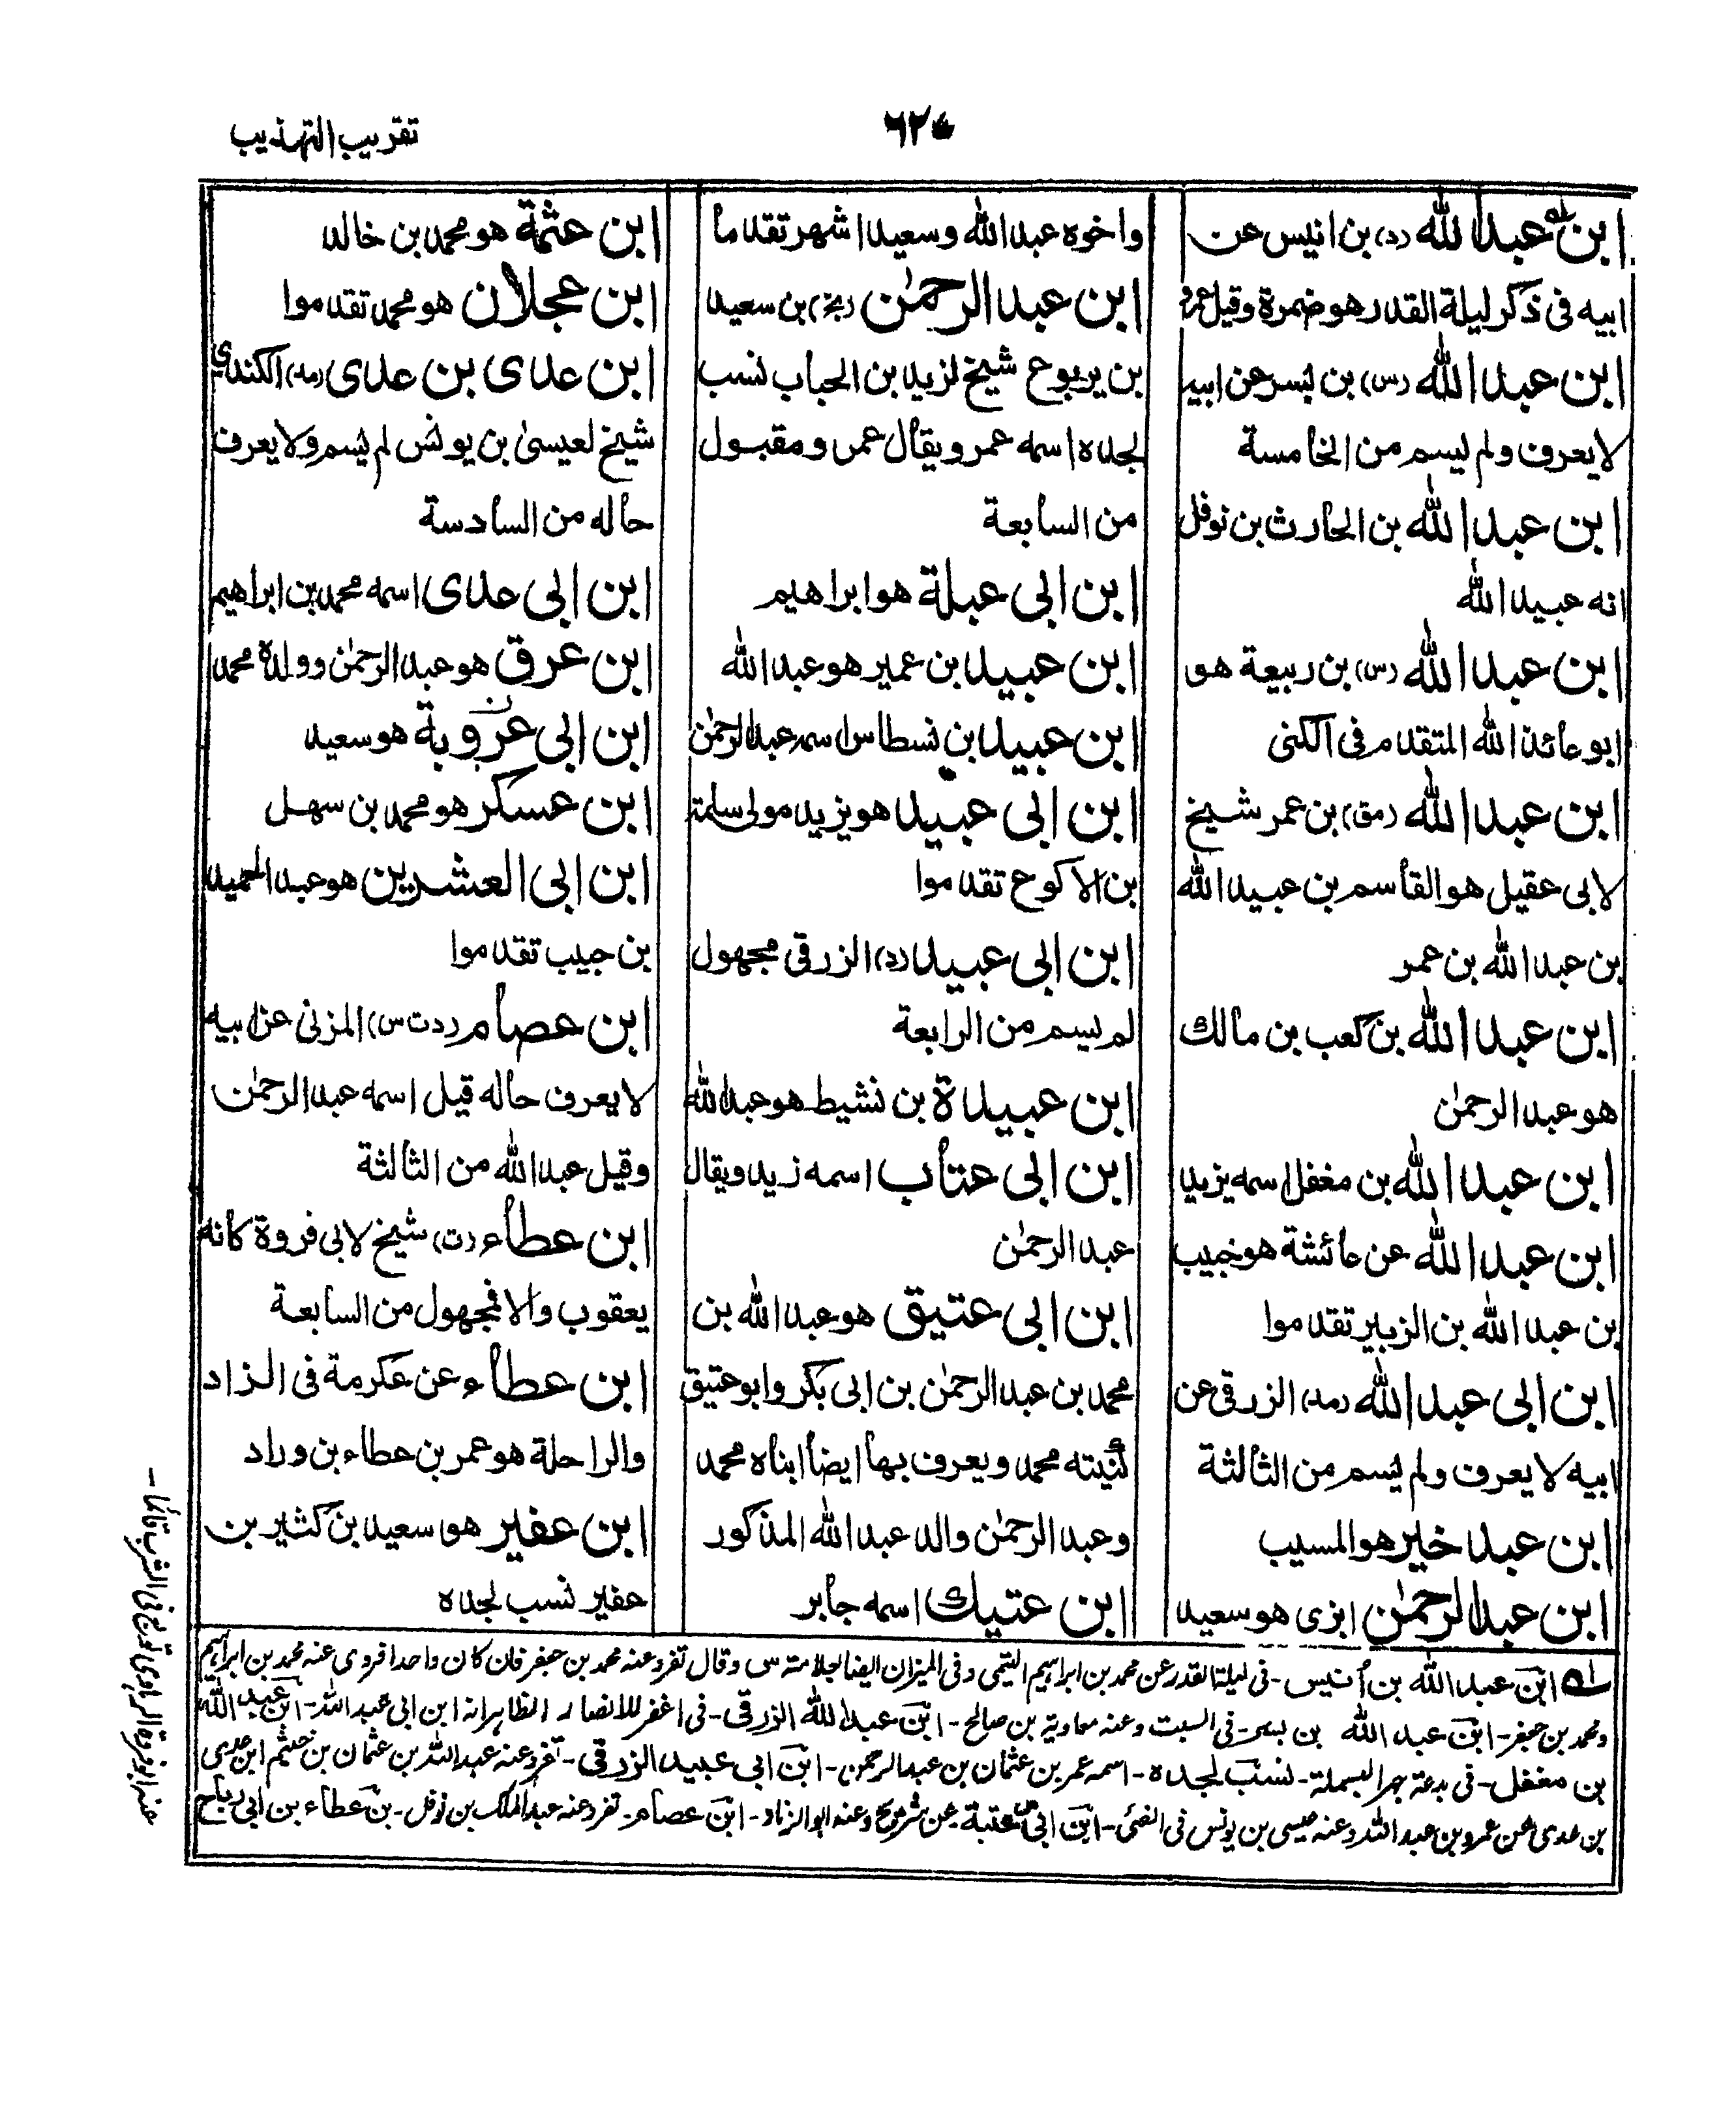 تقريب التهذيب
٦٢٠
ابن عبد الله (د) بن انيس عن
ابيه فى ذكر ليلة القدر هو ضمرة وقيل عمرو
ابن عبد الله (س) بن بسر عن ابيه
لا يعرف ولم يسم من الخامسة
ابن عبد الله بن الحارث بن نوفل
انه عبيد الله
ابن عبد الله (س) بن ربيعة هو
ابو عائذ الله المتقدم فى الكنى
ابن عبد الله (مق) بن عمر شيخ
لابى عقيل هو القاسم بن عبيد الله
بن عبد الله بن عمر
ابن عبد الله بن كعب بن مالك
هو عبد الرحمٰن
ابن عبد الله بن مغفل اسمه يزيد
ابن عبد الله عن عائشة هو خبيب
بن عبد الله بن الزبير تقدموا
ابن ابى عبد الله (مد) الزرقى عن
ابيه لا يعرف ولم يسم من الثالثة
ابن عبد خير هو المسيب
ابن عبد الرحمٰن ابزى هو سعيد
واخوه عبد الله وسعيد اشهر تقدما
ابن عبد الرحمٰن (بخ) بن سعيد
بن يربوع شيخ لزيد بن الحباب نسب
لجده اسمه عمرو يقال عمر ومقبول
من السابعة
ابن ابى عبلة هو ابراهيم
ابن عبيد بن عمير هو عبد الله
ابن عبيد بن نسطاس اسمه عبد الرحمٰن
ابن ابى عبيد هو يزيد مولى سلمة
بن الاكوع تقدموا
ابن ابى عبيد (د) الزرقى مجهول
لم يسم من الرابعة
ابن عبيدة بن نشيط هو عبد الله
ابن ابى عتاب اسمه زيد ويقال
عبد الرحمٰن
ابن ابى عتيق هو عبد الله بن
محمد بن عبد الرحمٰن بن ابى بكر وابو عتيق
كنيته محمد ويعرف بها ايضا ابناه محمد
وعبد الرحمٰن والد عبد الله المذكور
ابن عتيك اسمه جابر
ابن عثمة هو محمد بن خالد
ابن عجلان هو محمد تقدموا
ابن عدى بن عدى (مد) الكندي
شيخ لعيسىٰ بن يونس لم يسم ولا يعرف
حاله من السادسة
ابن ابى عدى اسمه محمد بن ابراهيم
ابن عرق هو عبد الرحمٰن وولده محمد
ابن ابى عروبة هو سعيد
ابن عسكر هو محمد بن سهل
ابن ابى العشرين هو عبد الحميد
بن حبيب تقدموا
ابن عصام (د ت س) المزنى عن ابيه
لا يعرف حاله قيل اسمه عبد الرحمٰن
وقيل عبد الله من الثالثة
ابن عطاء (ت) شيخ لابى فروة كانه
يعقوب والا فمجهول من السابعة
ابن عطاء عن عكرمة فى الزاد
والراحلة هو عمر بن عطاء بن وراد
ابن عفير هو سعيد بن كثير بن
عفير نسب لجده
له ابن عبد الله بن أنيس - فى ليلة القدر عن محمد بن ابراهيم التيمى وفى الميزان ايضا بعلامته س وقال تفرد عنه محمد بن جعفر فان كان واحدا فروى عنه محمد بن ابراهيم
ومحمد بن جعفر - ابن عبد الله بن بسر - فى السبت وعنه معاوية بن صالح - ابن عبد الله الزرقى - فى اغفر للانصار الظاهر انه ابن ابى عبد الله - ابن عبد الله
بن مغفل - فى بدعة جهر البسملة - نسب لجده - اسمه عمر بن عثمان بن عبد الرحمن - ابن ابى عبيد الزرقى - تفرد عنه عبد الله بن عثمان بن خثيم ابن عدى
بن عدى عن عمرو بن عبد الله وعنه عيسى بن يونس فى الفئى - ابن ابى عتبة عن شريح وعنه ابو الزناد - ابن عصام - تفرد عنه عبد الملك بن نوفل - بن عطاء بن ابى رباح
عنه ابو فروة الرهاوى